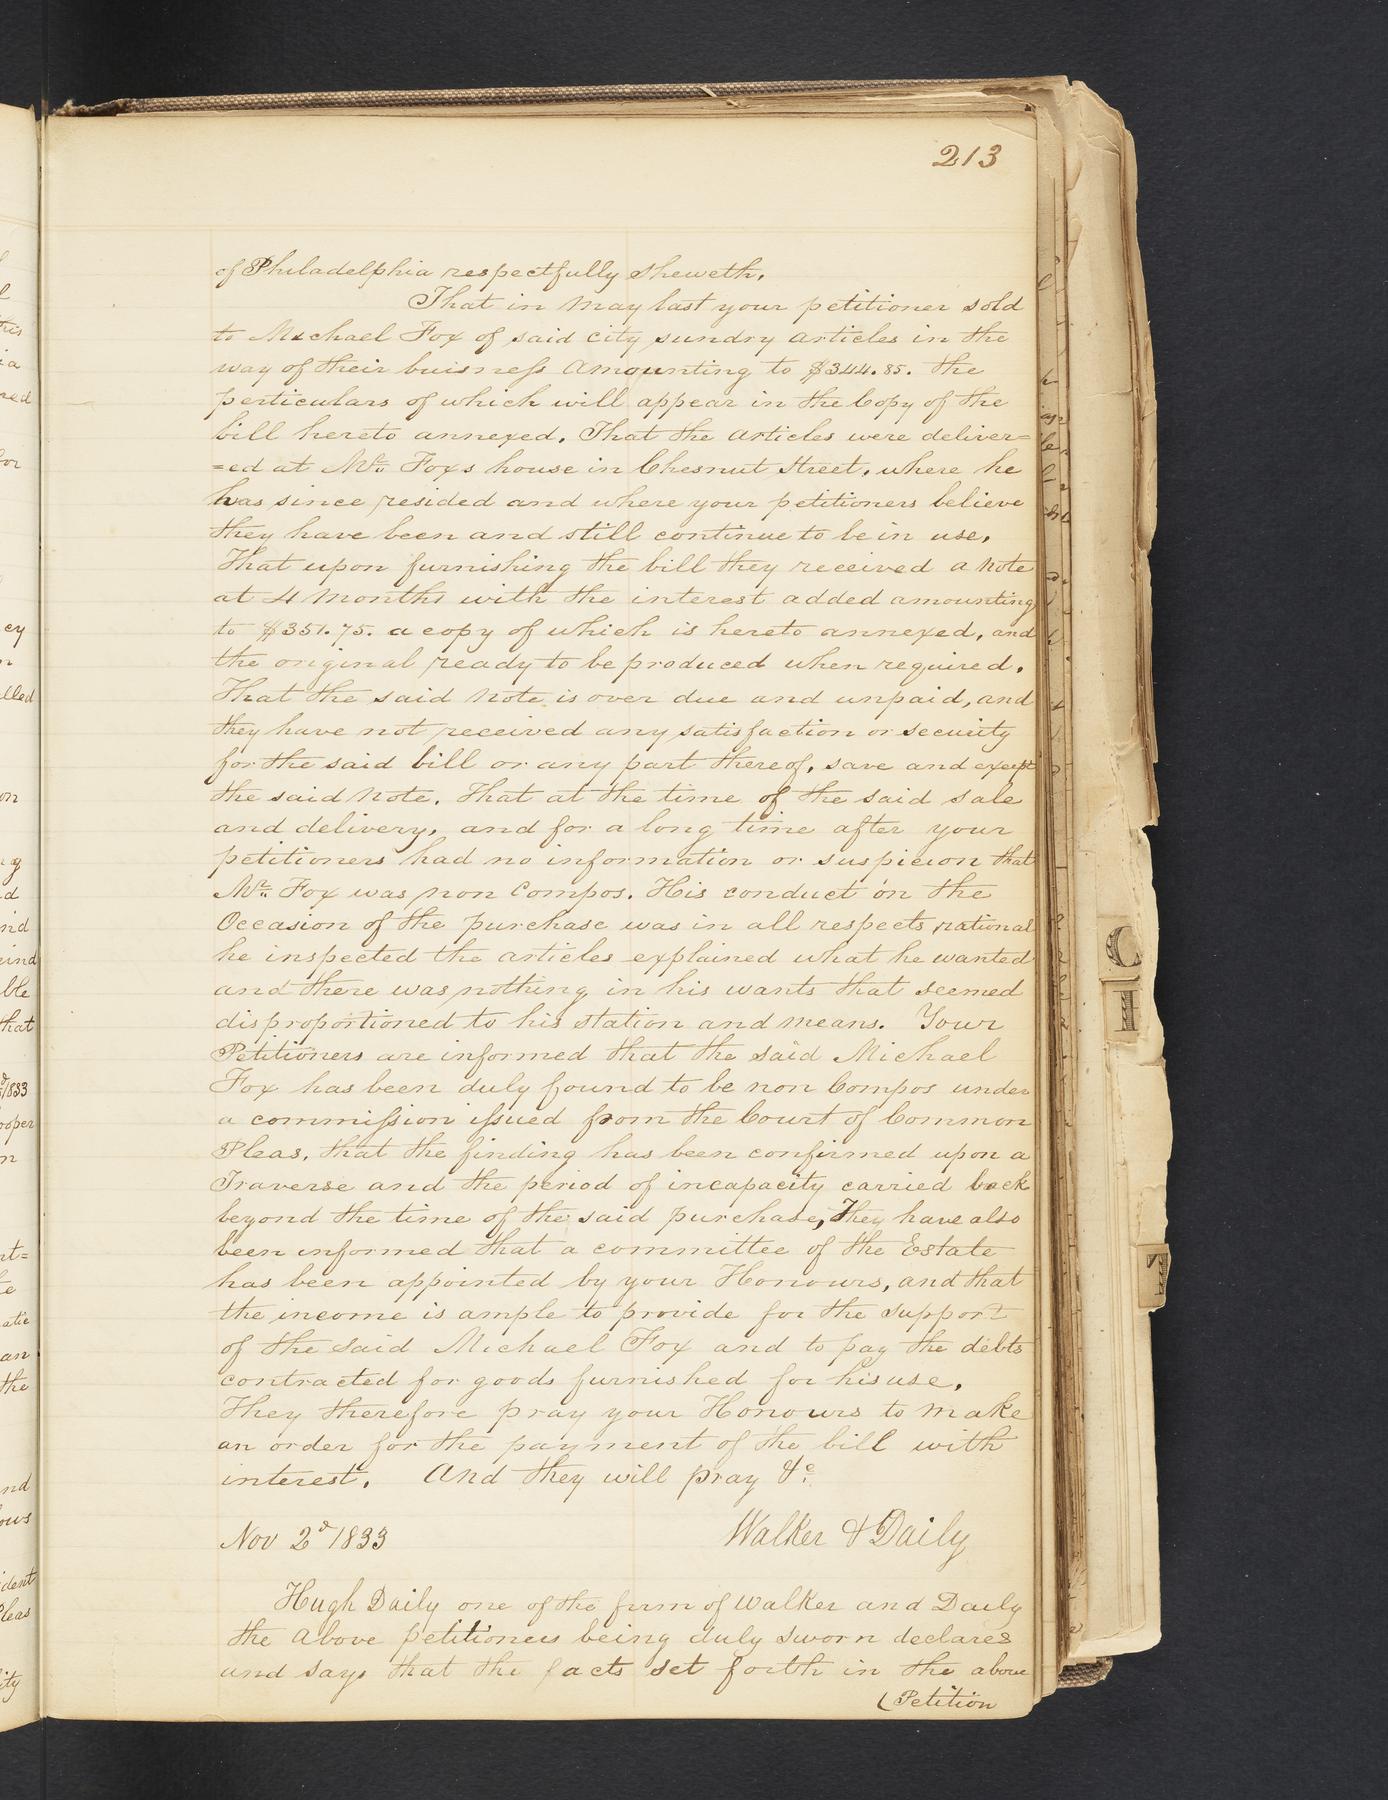 213
of Philadelphia respectfully sheweth.
That in May last your petitioner sold
to Michael Fox of said city sundry articles in the
way of their buisness Amounting to $344.85. The
perticulars of which will appear in the Copy of the
bill hereto annexed. That the articles were deliver=
=ed at Mr. Foxs house in Chesnut Street, where he
has since resided and where your petitioners believe
they have been and still continue to be in use.
That upon furnishing the bill they received a Note
at 4 Months with the interest added amounting
to $351.75. a copy of which is hereto annexed, and
the original ready to be produced when required.
That the said Note is over due and unpaid, and
they have not received any satisfaction or security
for the said bill or any part thereof, save and except
the said Note. That at the time of the said sale
and delivery, and for a long time after your
petitioners had no information or suspicion that
Mr. Fox was non Compos. His conduct on the
Occasion of the purchase was in all respects rational
he inspected the articles explained what he wanted
and there was nothing in his wants that seemed
disproportioned to his station and means. Your
Petitioners are informed that the said Michael
Fox has been duly found to be non Compos under
a commission issued from the Court of Common
Pleas, that the finding has been confirmed upon a
Traverse and the period of incapacity carried back
beyond the time of the said purchase, They have also
been informed that a committee of the Estate
has been appointed by your Honours, and that
the income is ample to provide for the support
of the said Michael Fox and to pay the debts
contracted for goods furnished for his use.
They therefore pray your Honours to make
an order for the payment of the bill with
interest. And they will pray &c.
Nov 2d 1833 Walker & Daily
Hugh Daily one of the firm of Walker and Daily
the above petitioners being duly sworn declares
and says that the facts set forth in the above
(Petition